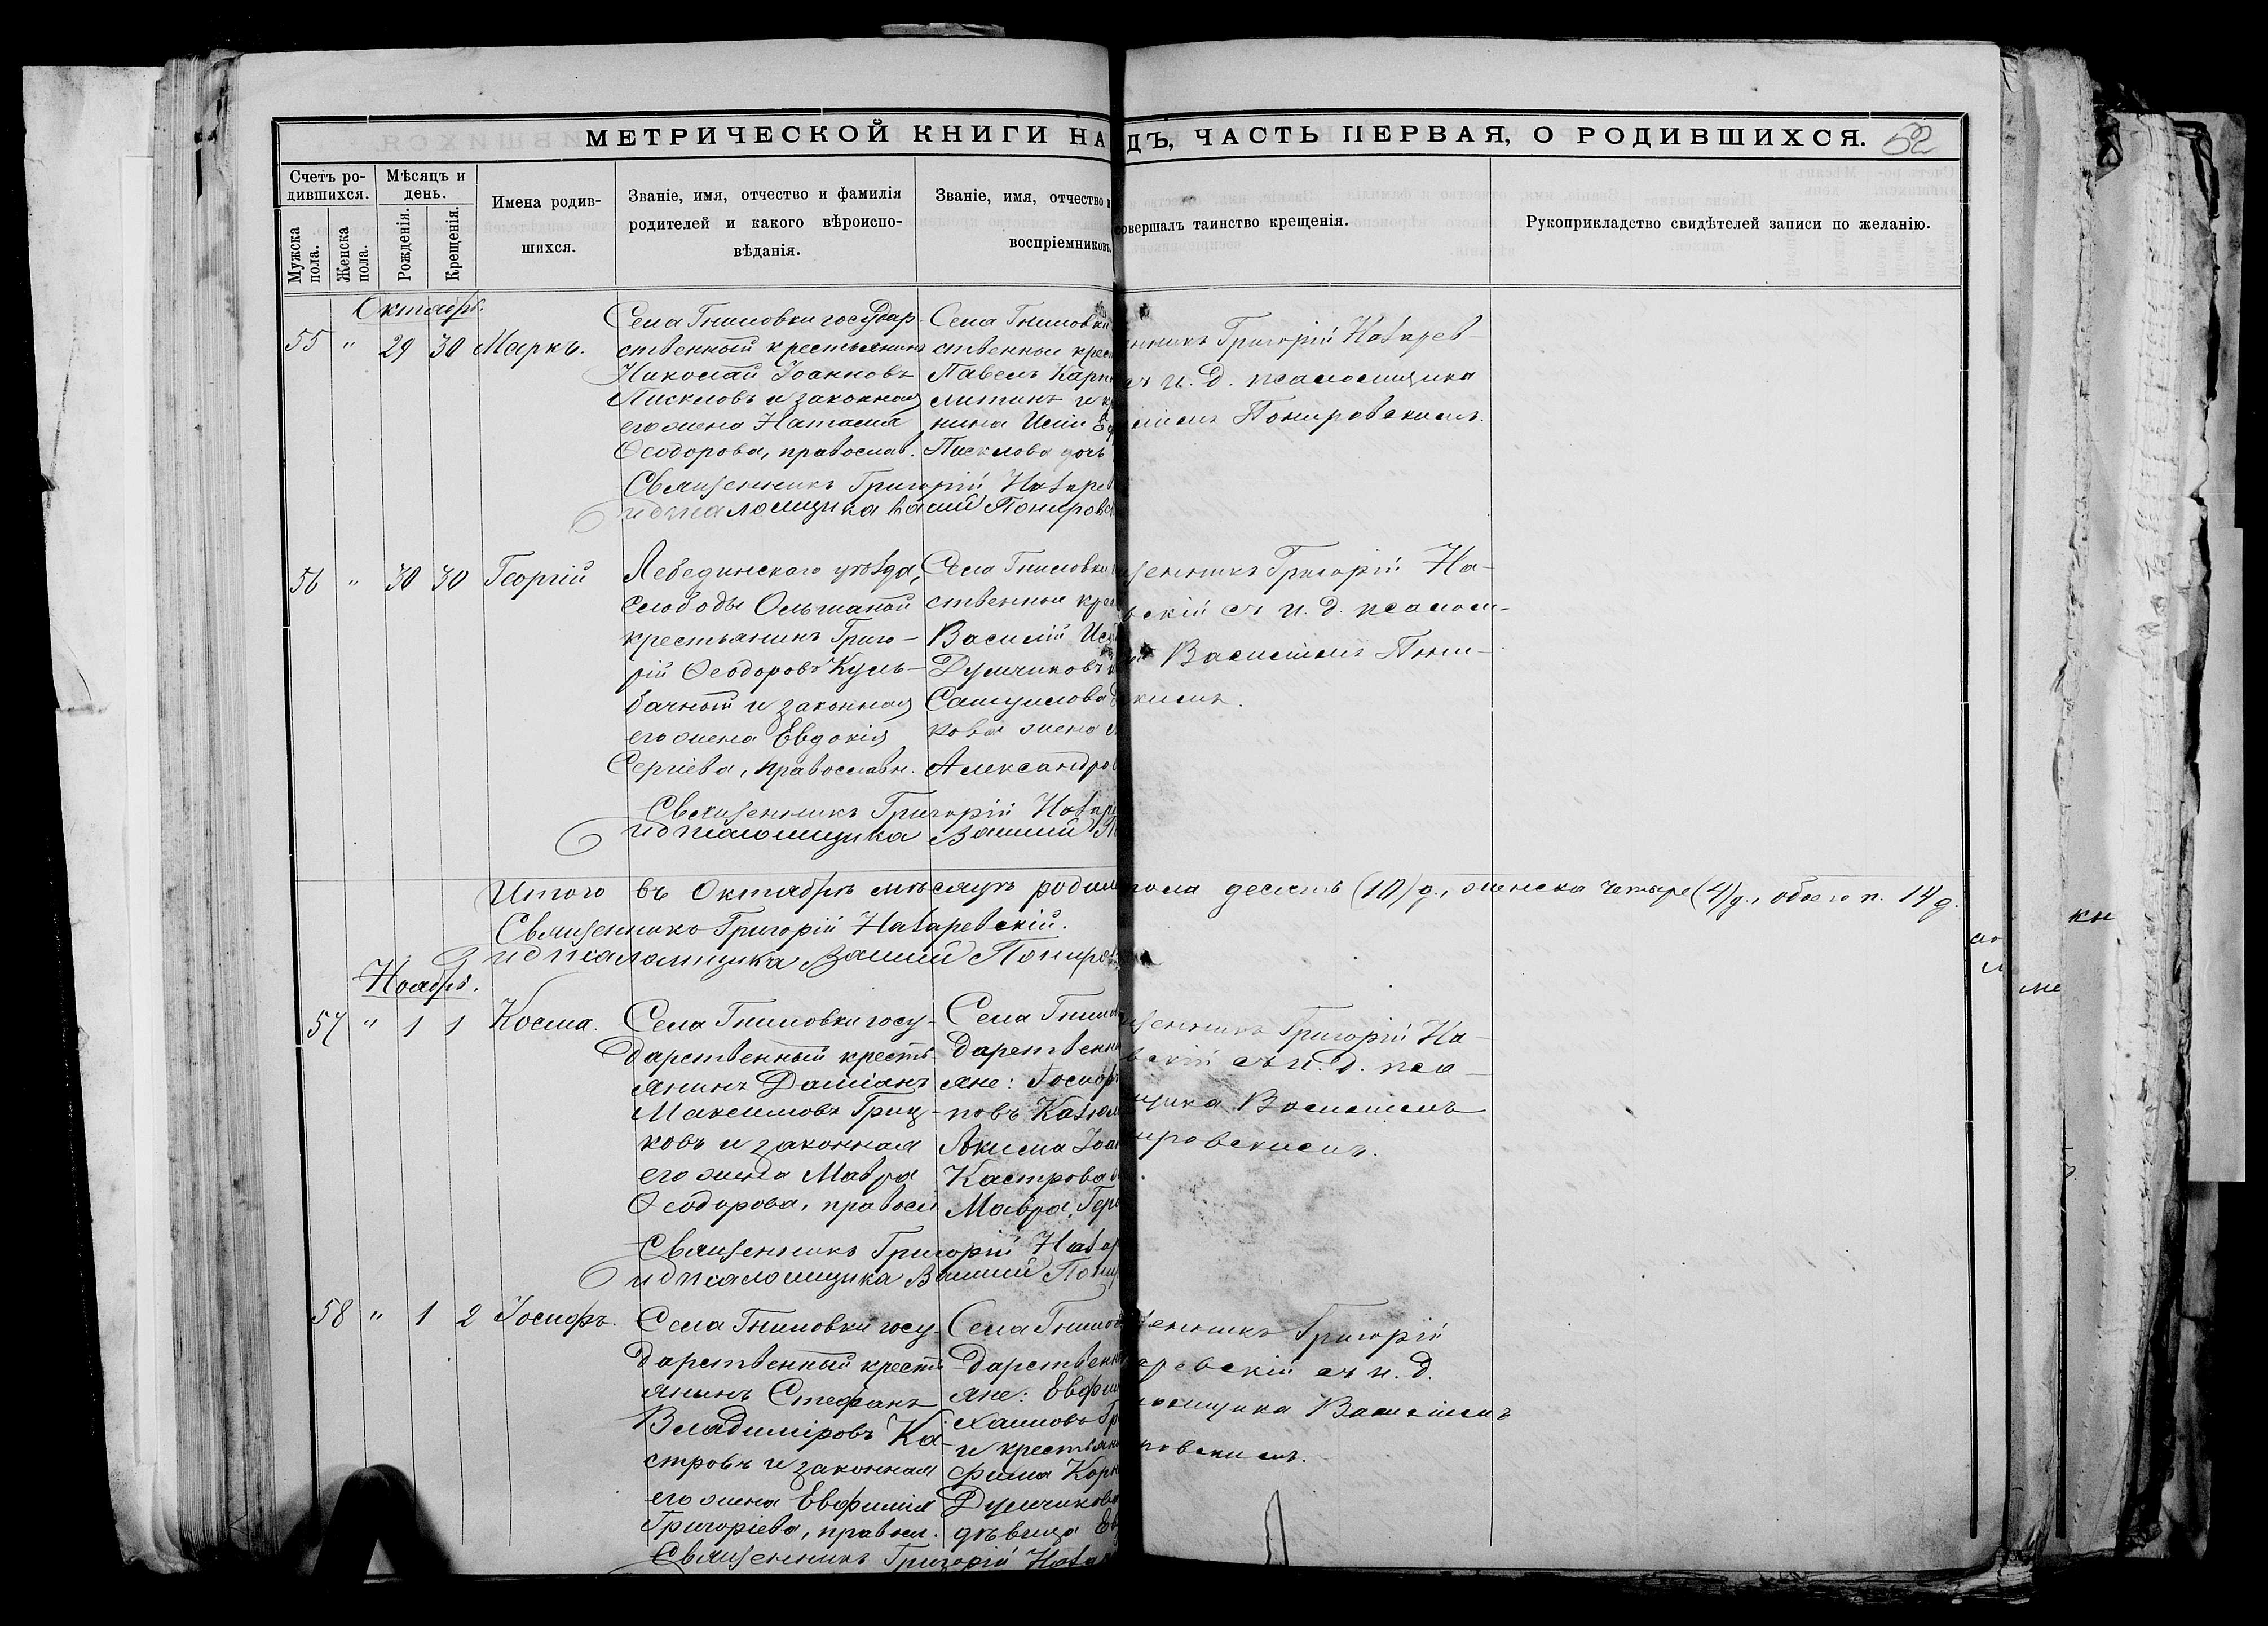 МЕТРИЧЕСКОЙ КНИГИ НА
ДЪ, ЧАСТЬ ПЕРВАЯ, О РОДИВШИХСЯ. 52
Счетъ ро-
дившихся.
Мужска
пола.
Женска
пола.
Мѣсяцъ и
день.
Рожденія.
Крещенія.
Имена родив-
шихся.
Званіе, имя, отчество и фамилія
родителей и какого вѣроиспо-
вѣданія.
Званіе, имя, отчество и
воспріемниковъ.
совершалъ таинство крещенія.
Рукоприкладство свидѣтелей записи по желанію.
Октябрь.
55 " 29 30 Маркъ.
Села Гниловки государ-
ственный крестьянинъ
Николай Іоанновъ
Пискловъ и законная
его жена Наталія
Ѳеодорова, православ.
Села Гниловки
ственные крес
Павелъ Карп
и к
нина
Писклова дочь
нникъ Григорій Назарев-
ъ и. д. псаломщика
іемъ Понировскимъ.
Священникъ Григорій Назарев
и д псаломщика Василій Понировск
56 " 30 30 Георгій
Лебединскаго уѣзда,
слободы Ольшаной
крестьянинъ Григо-
рій Ѳеодоровъ Куль-
бачный и законная
его жена Евдокія
Сергіева, православн.
Села Гниловки
ственные крес
Василій
Думчиковъ и
Самуилова
кова жена
Александров
щенникъ Григорій На-
вскій съ и. д. псалом-
Василіемъ Пони-
скимъ.
Священникъ Григорій Назаре
и д псаломщика Василій П
Итого въ Октябрѣ мѣсяцѣ родил
пола десять (10) д., женска четыре (4) д., обоего п. 14 д.
Священникъ Григорій Назаревскій.
и д псаломщика Василій Пониров
Ноябрь.
57 " 1 1 Косма.
Села Гниловки госу-
дарственный кресть-
янинъ Даміанъ
Максимовъ Гриц-
ковъ и законная
его жена Мавра
Ѳеодорова, правосл.
Села Гнилов
дарственн
яне: Іосифъ
повъ
Акима Іоан
Кастрова
Мавра Гер
щенникъ Григорій На-
вскій съ и. д. пса-
щика Василіемъ
ировскимъ.
Священникъ Григорій Назар
и д псаломщика Василій Пони
58 " 1 2 Іосифъ.
Села Гниловки госу-
дарственный кресть-
янинъ Стефанъ
Владиміровъ Ка-
стровъ и законная
его жена Евфимія
Григоріева, правосл.
Села Гнилов
дарственн
яне: Евфим
хаиловъ Гр
и крестьян
фима Корн
Думчикова
дѣвица Ев
щенникъ Григорій
аревскій съ и. д.
ломщика Василіемъ
ровскимъ.
Священникъ Григорій Назар